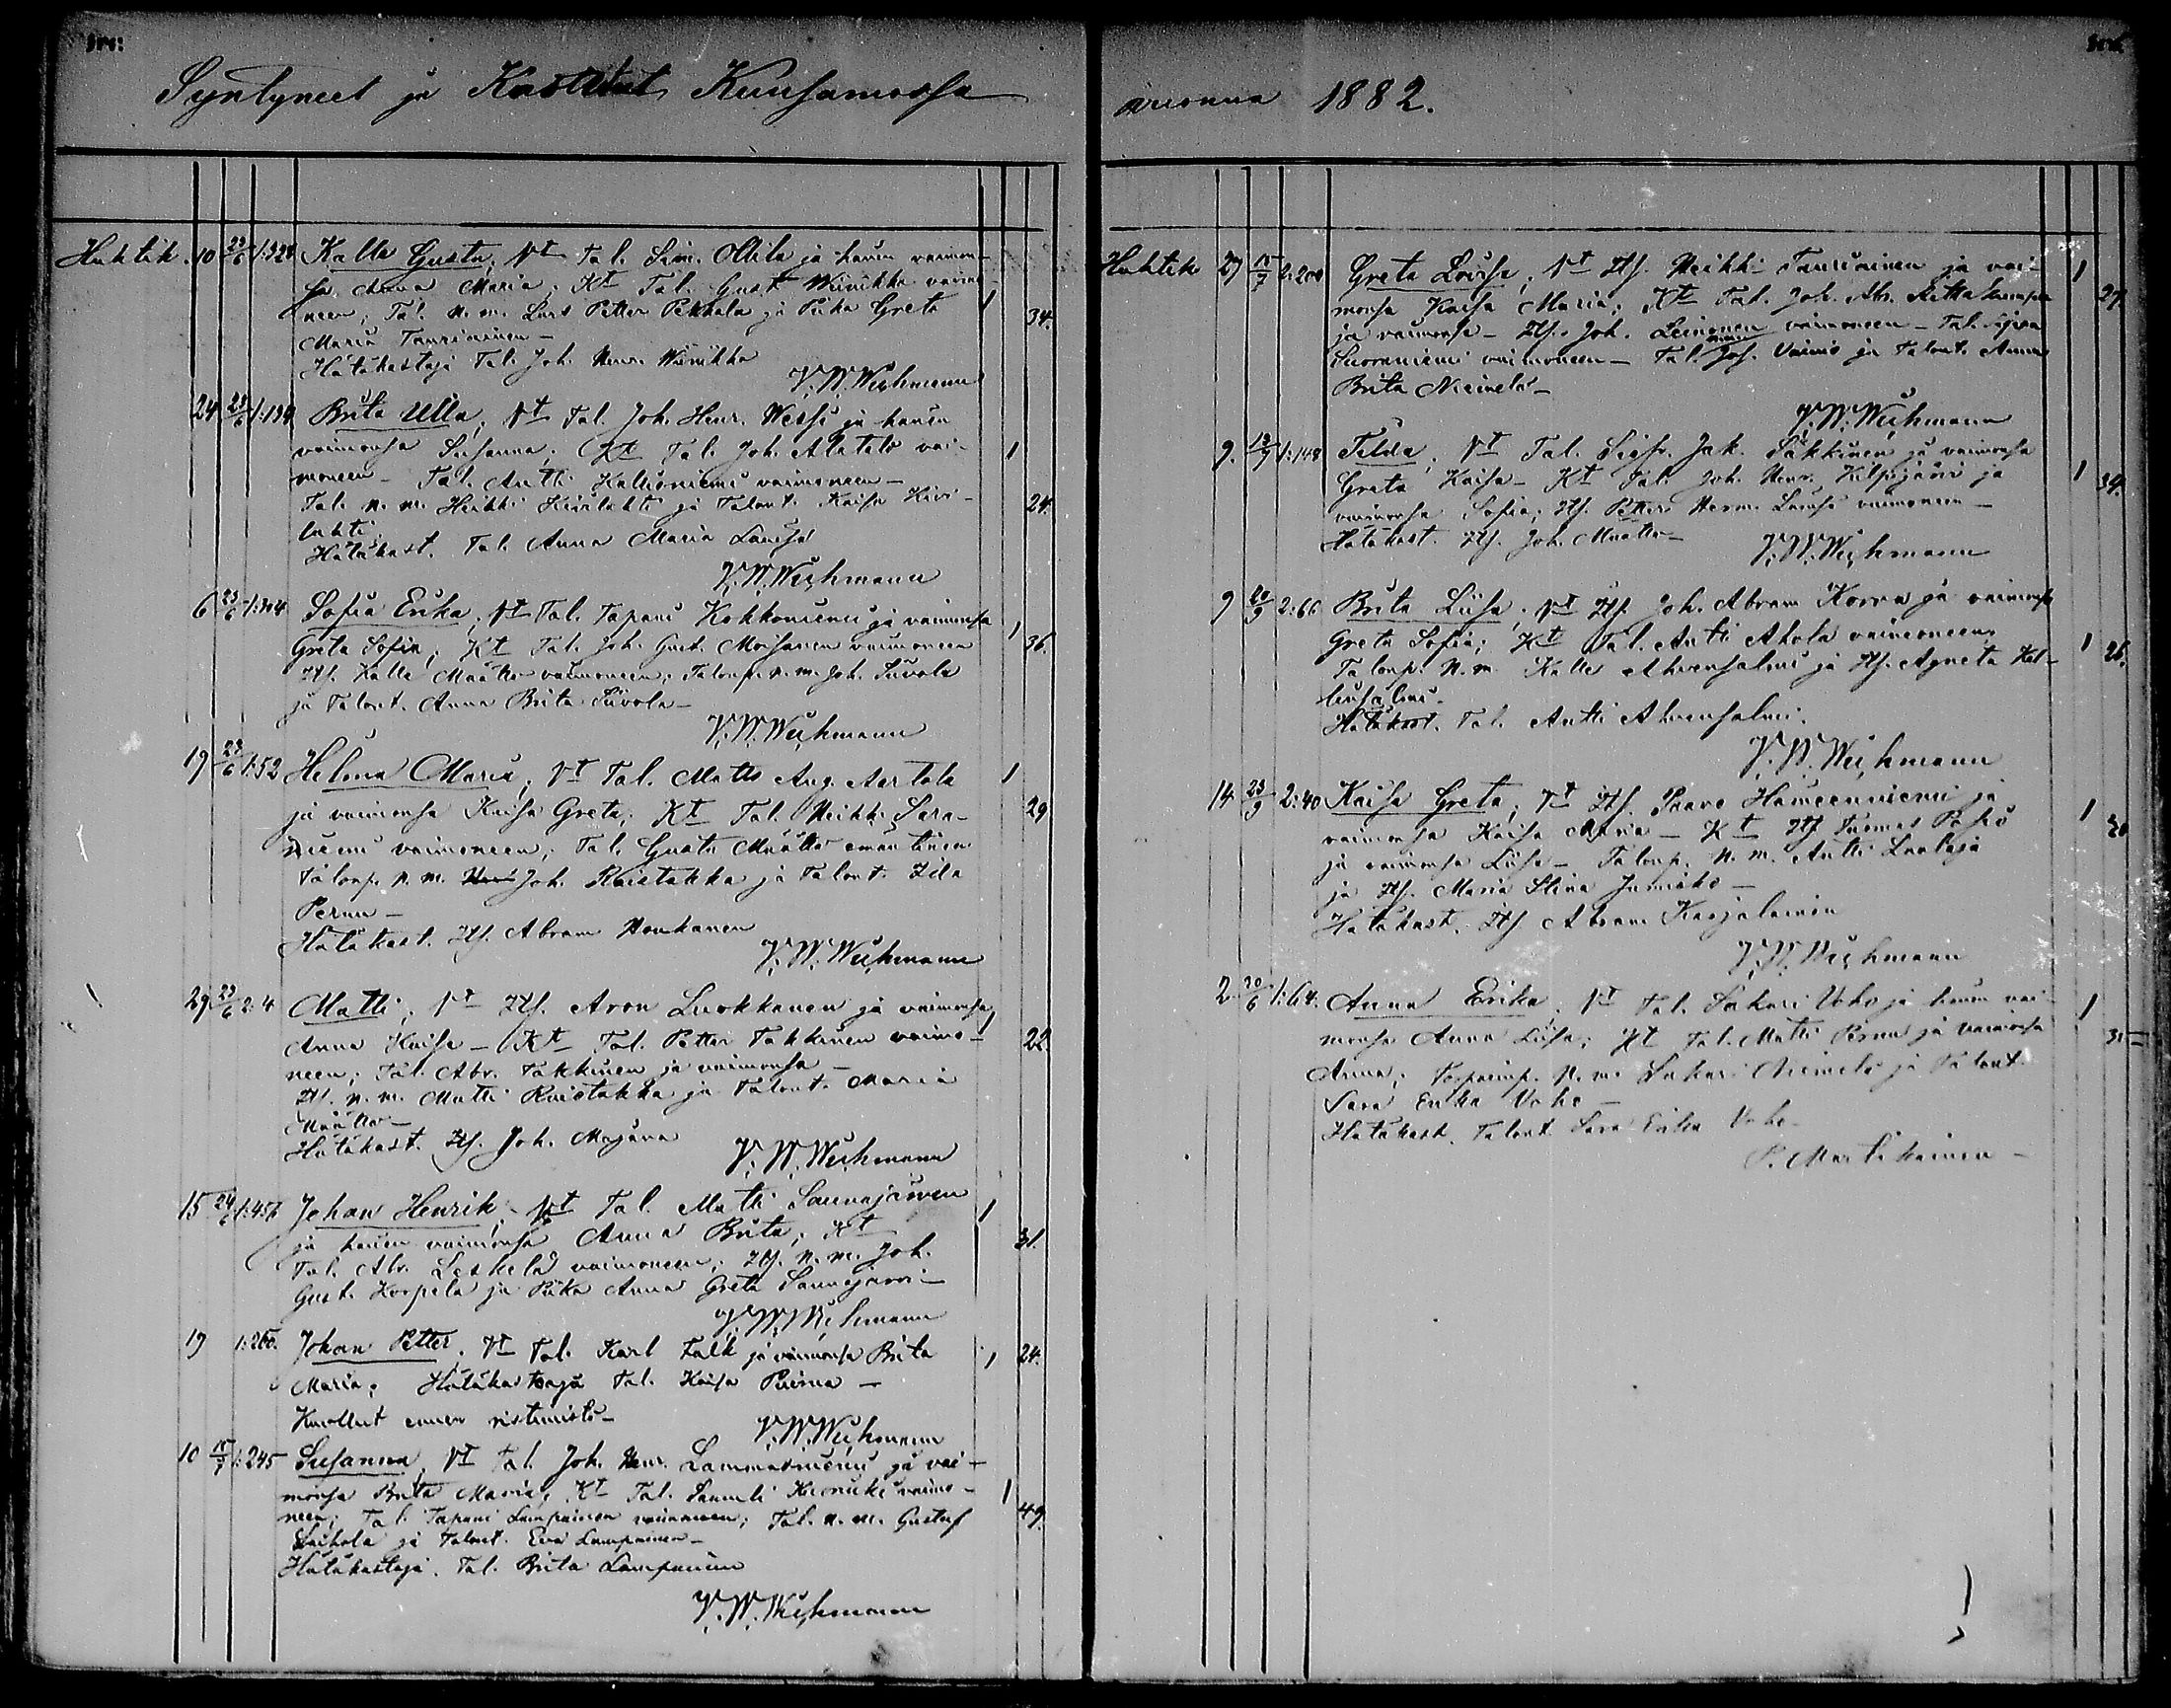 Syntyneet ja Kastetut Kuusamossa
Huhtik. 10 23/6 1:328 Kalle Gusta, Vt Tal. Sim. Ollila ja hänen vaimon-
sa Anna Maria; Kt Tal. Gust. Wiinikka vaimo-
neen; Tal. n. m. Lars Petter Pekkala ja Piika Greta 1 34.
Maria Tauriainen –
Hätäkastaja Tal. Joh. Henr. Wiinikka
V. W. Wichmann
24 23/6 1:139 Brita Ulla, Vt Tal. Joh. Henr. Wessi ja hänen
vaimonsa Susanna; Kt Tal. Joh. Alatalo vai- 1
moneen – Tal. Antti Kallioniemi vaimoneen –
Tal. n. m. Heikki Kivilahti ja Talont. Kaisa Kivi- 24.
lahti;
Hätäkast. Tal. Anna Maria
V. W. Wichmann
6 23/6 1:304 Sofia Erika, Vt Tal. Tapani Kokkoniemi ja vaimonsa 1
Greta Sofia; Kt Tal. Joh. Gust. Moisanen vaimoneen 36.
Its. Kalle Määttä vaimoneen; Talonp. n. m. Joh. Siivola
ja Talont. Anna Brita Siivola –
V. W. Wichmann
19 23/6 1:52 Helena Maria, Vt Tal. Matts Aug. Aartola 1
ja vaimonsa Kaisa Greta; Kt Tal. Heikki Sara- 29
niemi vaimoneen; Tal. Gusta Määttä emäntineen
Talonp. n. m. Joh. Raistakka ja Talont. Iida
Pernu –
Hätäkast. Its. Abram Honkanen
V. W. Wichmann
29 23/6 2:4 Matti, Vt Its. Aron Luokkanen ja vaimonsa 1
Anna Kaisa – Kt Tal. Petter Takkinen vaimo- 22.
neen; Tal. Abr. Takkinen ja vaimonsa –
Its. n. m. Matti Raistakka ja Talont. Maria
Määttä –
Hätäkast. Its. Joh. Mojana
V. W. Wichmann
15 24/6 1:456 Johan Henrik, Vt Tal. Matti Saunajärven 1
ja hänen vaimonsa Anna Brita; Kt 31.
Tal. Abr. Leskelä vaimoneen; Its. n. m. Joh.
Gust. Korpela ja Piika Anna Greta Saunajärvi –
V. W. Wichmann
19 1:260. Johan Petter, Vt Tal. Karl Falk ja vaimonsa Brita 1 24.
Maria; Hätäkastaja Tal. Kaisa
Kuollut ennen ristimistä –
V. W. Wichmann
10 15/7 1:245 Susanna, Vt Tal. Joh. Henr. Lammasniemi ja vai-
monsa Brita Maria; Kt Tal. Samuli vaimo- 1
neen; Tal. Tapani Lampainen vaimoneen; Tal. n. m. Gustaf 49.
ja Talont. Eva Lampainen –
Hätäkastaja. Tal. Brita Lampainen
V. W. Wichmann
vuonna 1882.
Huhtik 27 15/7 2:200 Greta Lovisa, Vt Its. Heikki Tauriainen ja vai- 1
monsa Kaisa Maria; Kt Tal. Joh. Abr. 27.
ja vaimonsa – Its. Joh. Leinonen vaimoneen – Tal.
Suoraniemi vaimoneen – Tal. n.m. Jos. Vainio ja Talont. Anna
Brita Niemelä –
V. W. Wichmann
9. 19/7 1:148 Tilda, Vt Tal. Sigfr. Jak. Säkkinen ja vaimonsa
Greta Kaisa – Kt Tal. Joh. Henr. Kilpijärvi ja 1 34.
vaimonsa Sofia; Its. Petter Herm. vaimoneen –
Hätäkast. Its. Joh. Määttä –
V. W. Wichmann
9 20/9 2:66. Brita Liisa, Vt Its. Joh. Abram Korva ja vaimonsa
Greta Sofia; Kt Tal. Antti Ahola vaimoneen; 1 26.
Talonp. n. m. Kalle Ahvensalmi ja Its. Agneta Kal-
liusalmi.
Hätäkast. Tal. Antti Ahvensalmi.
V. W. Wichmann
14 23/9 2:40 Kaisa Greta, Vt Its. Paavo Hämeenniemi ja 1
vaimonsa Kaisa Maria – Kt Its. Tuomas Posio
ja vaimonsa Liisa – Talonp. n. m. Antti Laulaja
ja Its. Maria Stina Jumisko –
Hätäkast. Its. Abram Karjalainen
V. W. Wichmann
2 30/6 1:64. Anna Erika, Vt Tal. Sakari Veho ja hänen vai- 1
monsa Anna Liisa; Kt Tal. Matti Pernu ja vaimonsa 31
Anna; n. m. Sakari Niemelä ja Talont.
Sara Erika Veho –
Hätäkast. Talont Sara Erika Veho –
P. Martikainen –